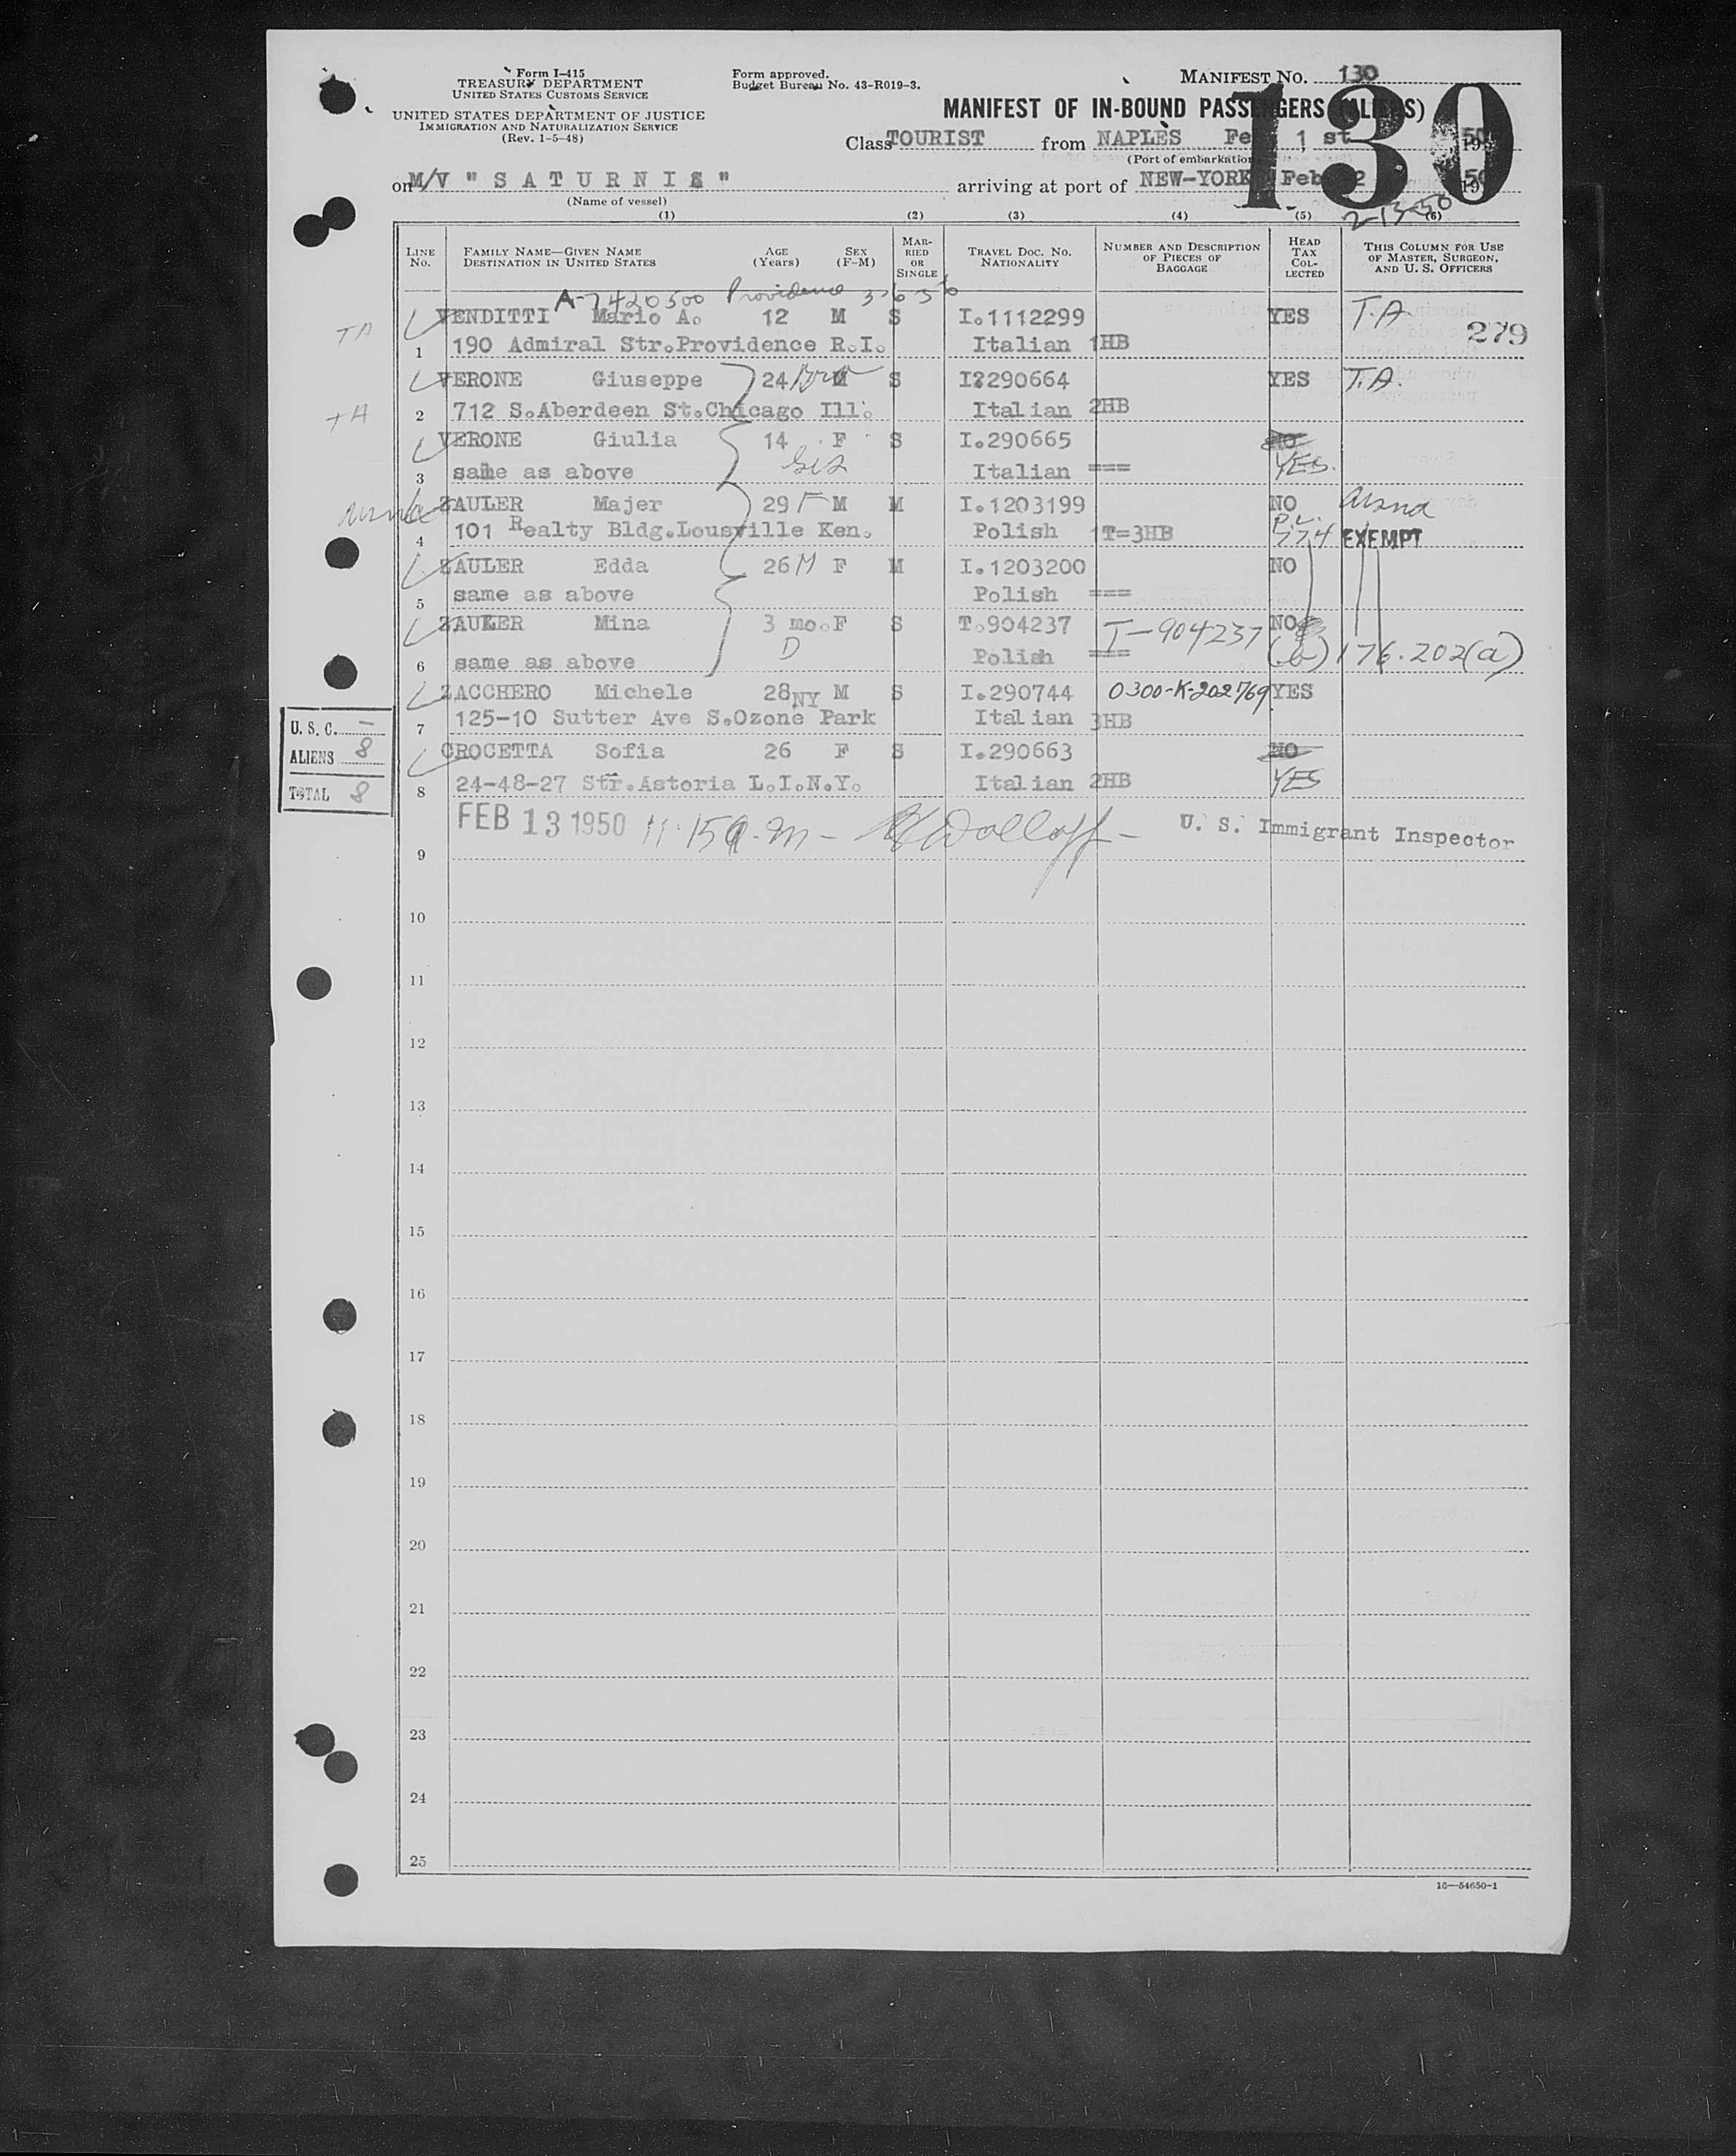 Form I-415
TREASURY DEPARTMENT
UNITED STATES CUSTOMS SERVICE
UNITED STATES DEPARTMENT OF JUSTICE
IMMIGRATION AND NATURALIZATION SERVICE
(Rev. 1-5-48)
Form approved.
Budget Bureau No. 43-R019-3.
MANIFEST No. 130
130
MANIFEST OF IN-BOUND PASSENGERS (ALIENS)
Class TOURIST from NAPLES Feb 1 st 1950
(Port of embarkation)
on M/V "SATURNIA" arriving at port of NEW-YORK Feb 12 1950
(Name of vessel)
2-13-50
(1) (2) (3) (4) (5) (6)
LINE No. FAMILY NAME—GIVEN NAME DESTINATION IN UNITED STATES AGE (Years) SEX (F-M) MARRIED OR SINGLE TRAVEL DOC. NO. NATIONALITY NUMBER AND DESCRIPTION OF PIECES OF BAGGAGE HEAD TAX COLLECTED THIS COLUMN FOR USE OF MASTER, SURGEON, AND U. S. OFFICERS
A-7420500 Providence 3-6-56
TA VENDITTI Mario A. 12 M S I.1112299 YES T.A.
279
1 190 Admiral Str.Providence R.I. Italian 1HB
VERONE Giuseppe 24 bro M S I?290664 YES T.A.
TA 2 712 S.Aberdeen St.Chicago Ill. Italian 2HB
VERONE Giulia 14 F S I.290665 NO
3 same as above sis Italian === YES.
ZAULER Majer 29 F M M I.1203199 NO
4 101 Realty Bldg.Lousville Ken. Polish 1T=3HB P.L. 774 EXEMPT
ZAULER Edda 26 M F M I.1203200 NO
5 same as above Polish ===
ZAULER Mina 3 mo. F S T.904237 T-904237 NO
6 same as above D Polish === (b) 176.202(a)
ZACCHERO Michele 28 NY M S I.290744 0300-K-202769 YES
7 125-10 Sutter Ave S.Ozone Park Italian 3HB
CROCETTA Sofia 26 F S I.290663 NO
8 24-48-27 Str.Astoria L.I.N.Y. Italian 2HB YES
U. S. C. —
ALIENS 8
TOTAL 8
FEB 13 1950 11.15 a.m - U. S. Immigrant Inspector
9
10
11
12
13
14
15
16
17
18
19
20
21
22
23
24
25
16—54650-1